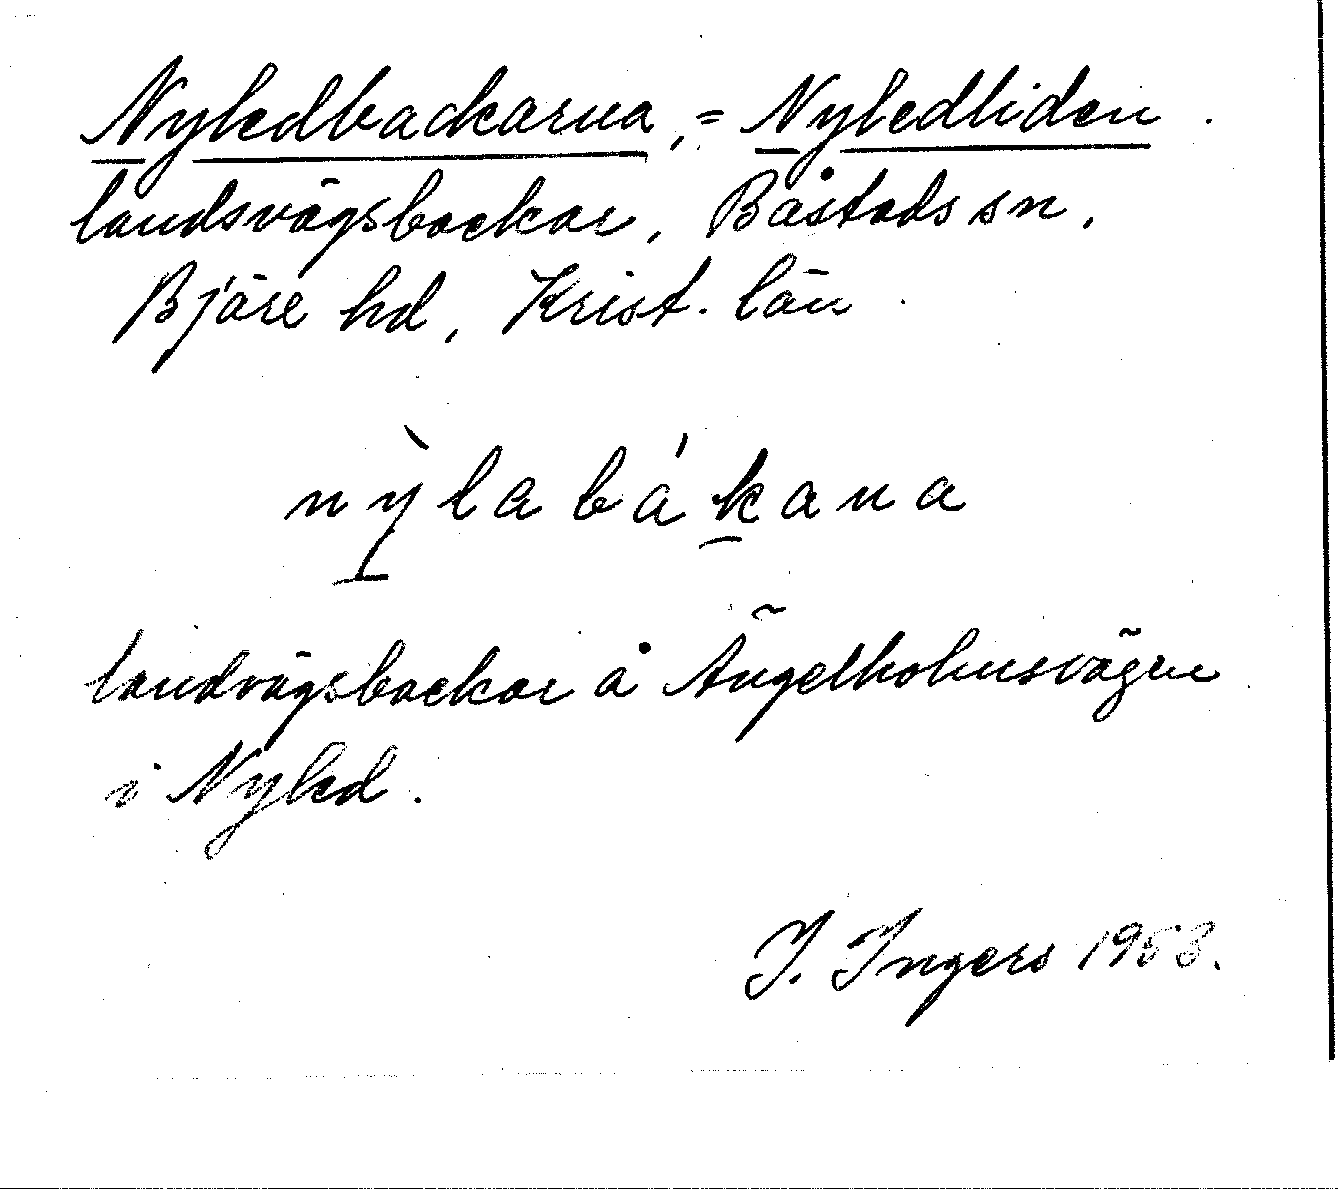 Nyledbackarna, = Nyledliden.
landsvägsbackar, Båstads sn,
Bjäre hd, Krist. län.
nỳlabákana
landvägsbackar å Ängelholmsvägen
i Nyled.
I. Ingers 1953.